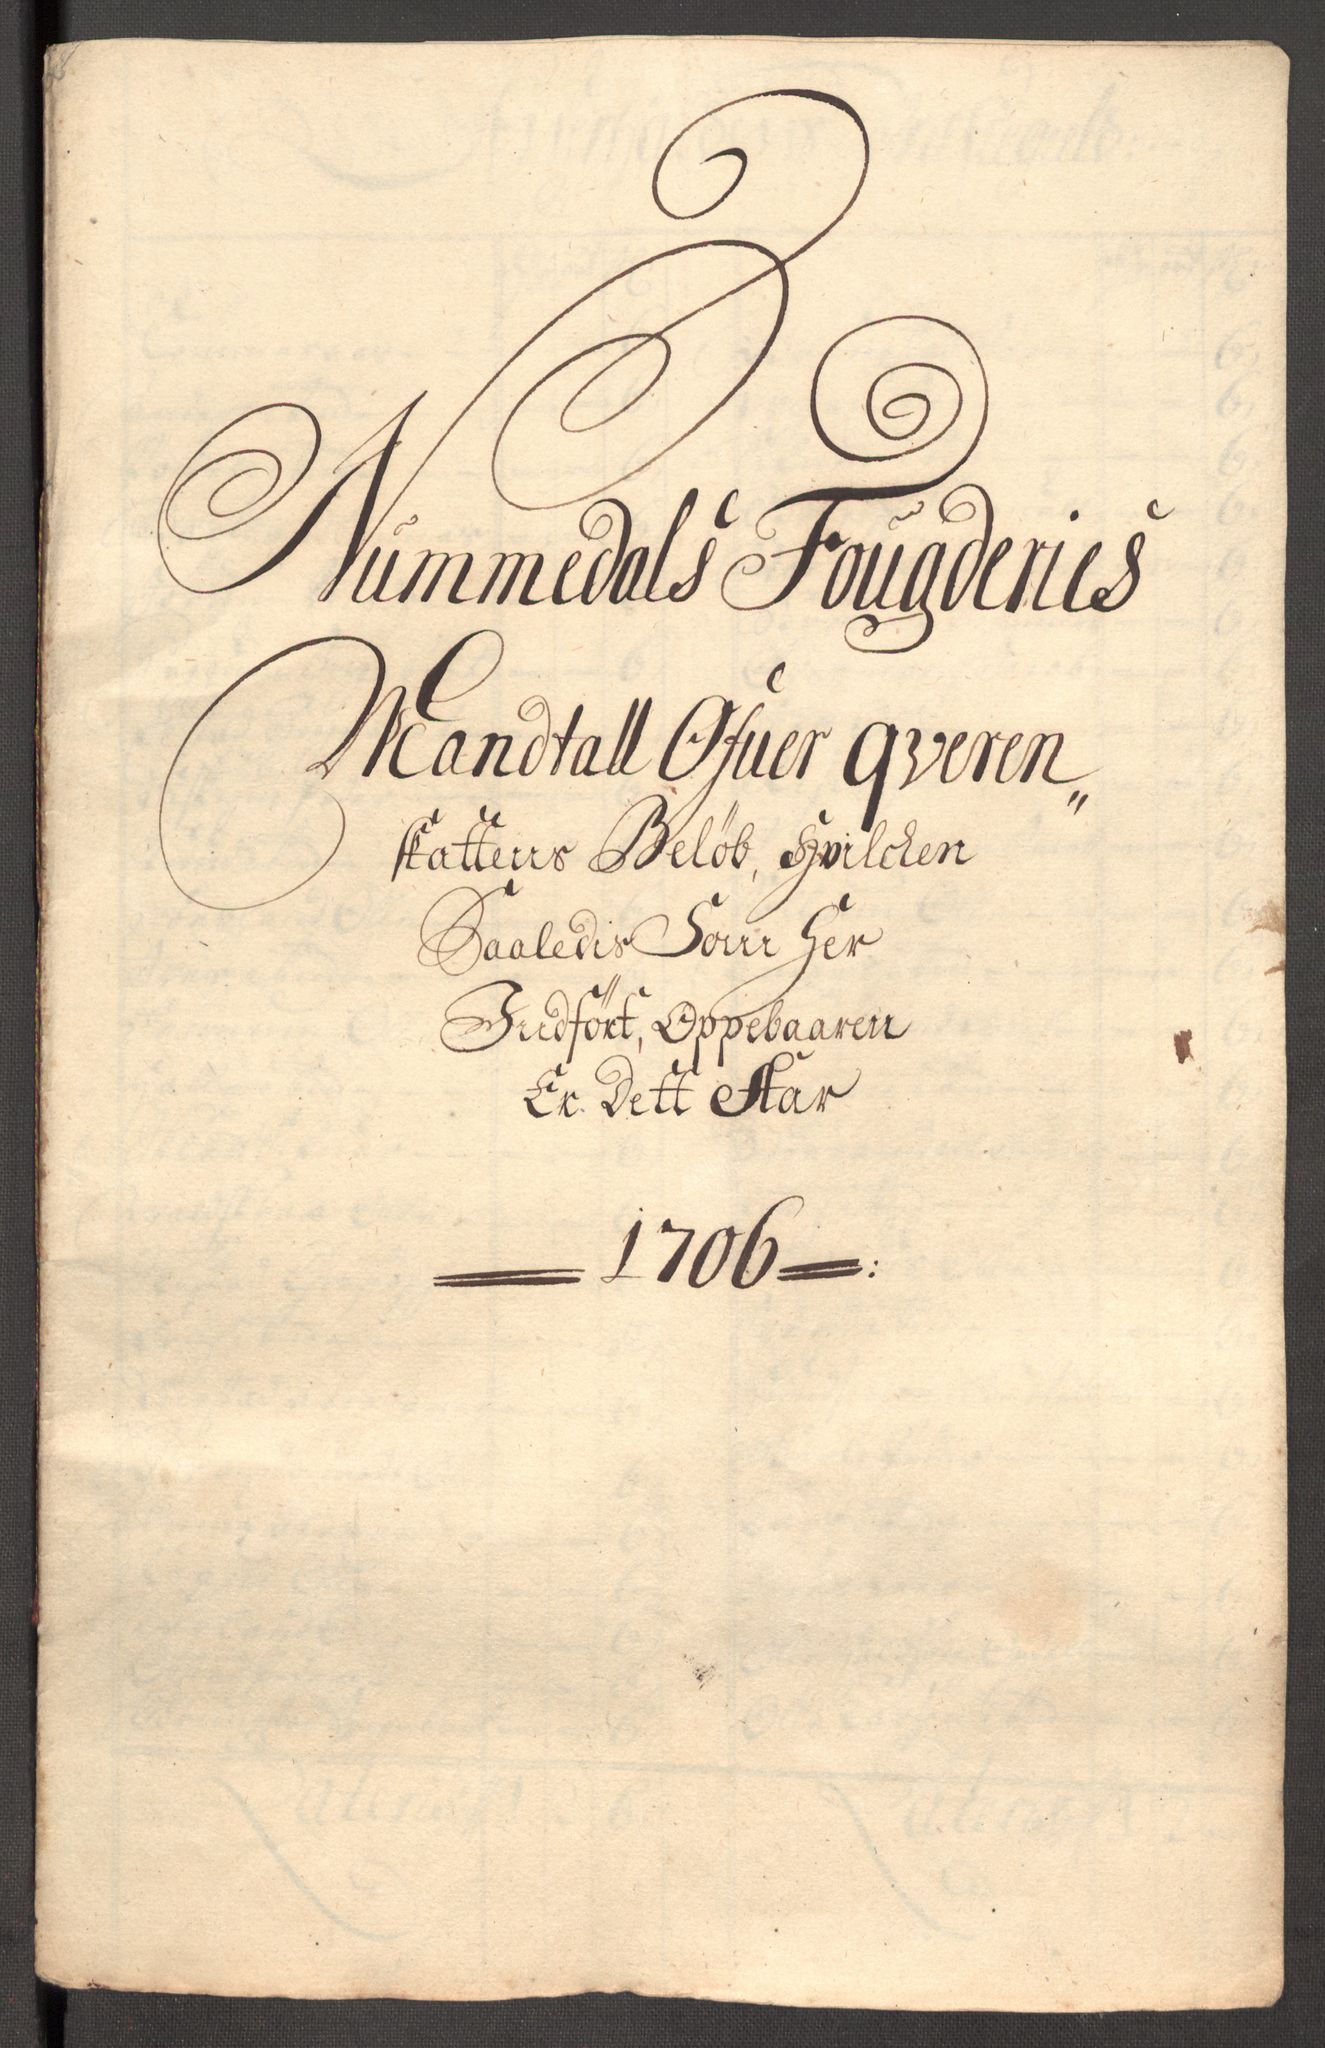 Nummedals Fougderies
Mandtall Ofuer qveren„
skattens Beløb, Hvilcken
Saaledis Som Her
Indført, Oppebaaren
Er. Dett Aar
1706